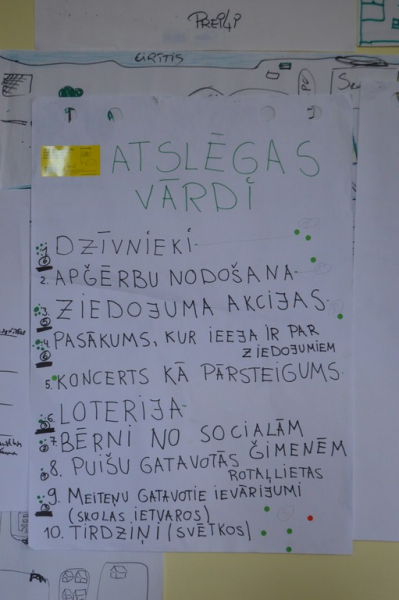 PREIĻI
CIRĪTIS
ATSLĒGAS
VĀRDI
1. DZĪVNIEKI
2. APĢĒRBU NODOŠANA
3. ZIEDOJUMA AKCIJAS
4. PASĀKUMS, KUR IEEJA IR PAR
ZIEDOJUMIEM
5. KONCERTS KĀ PĀRSTEIGUMS
6. LOTERIJA
7. BĒRNI NO SOCIALĀM
ĢIMENĒM
8. PUIŠU GATAVOTĀS
ROTAĻLIETAS
9. MEITEŅU GATAVOTIE IEVĀRIJUMI
(SKOLAS IETVAROS)
10. TIRDZIŅI (SVĒTKOS)